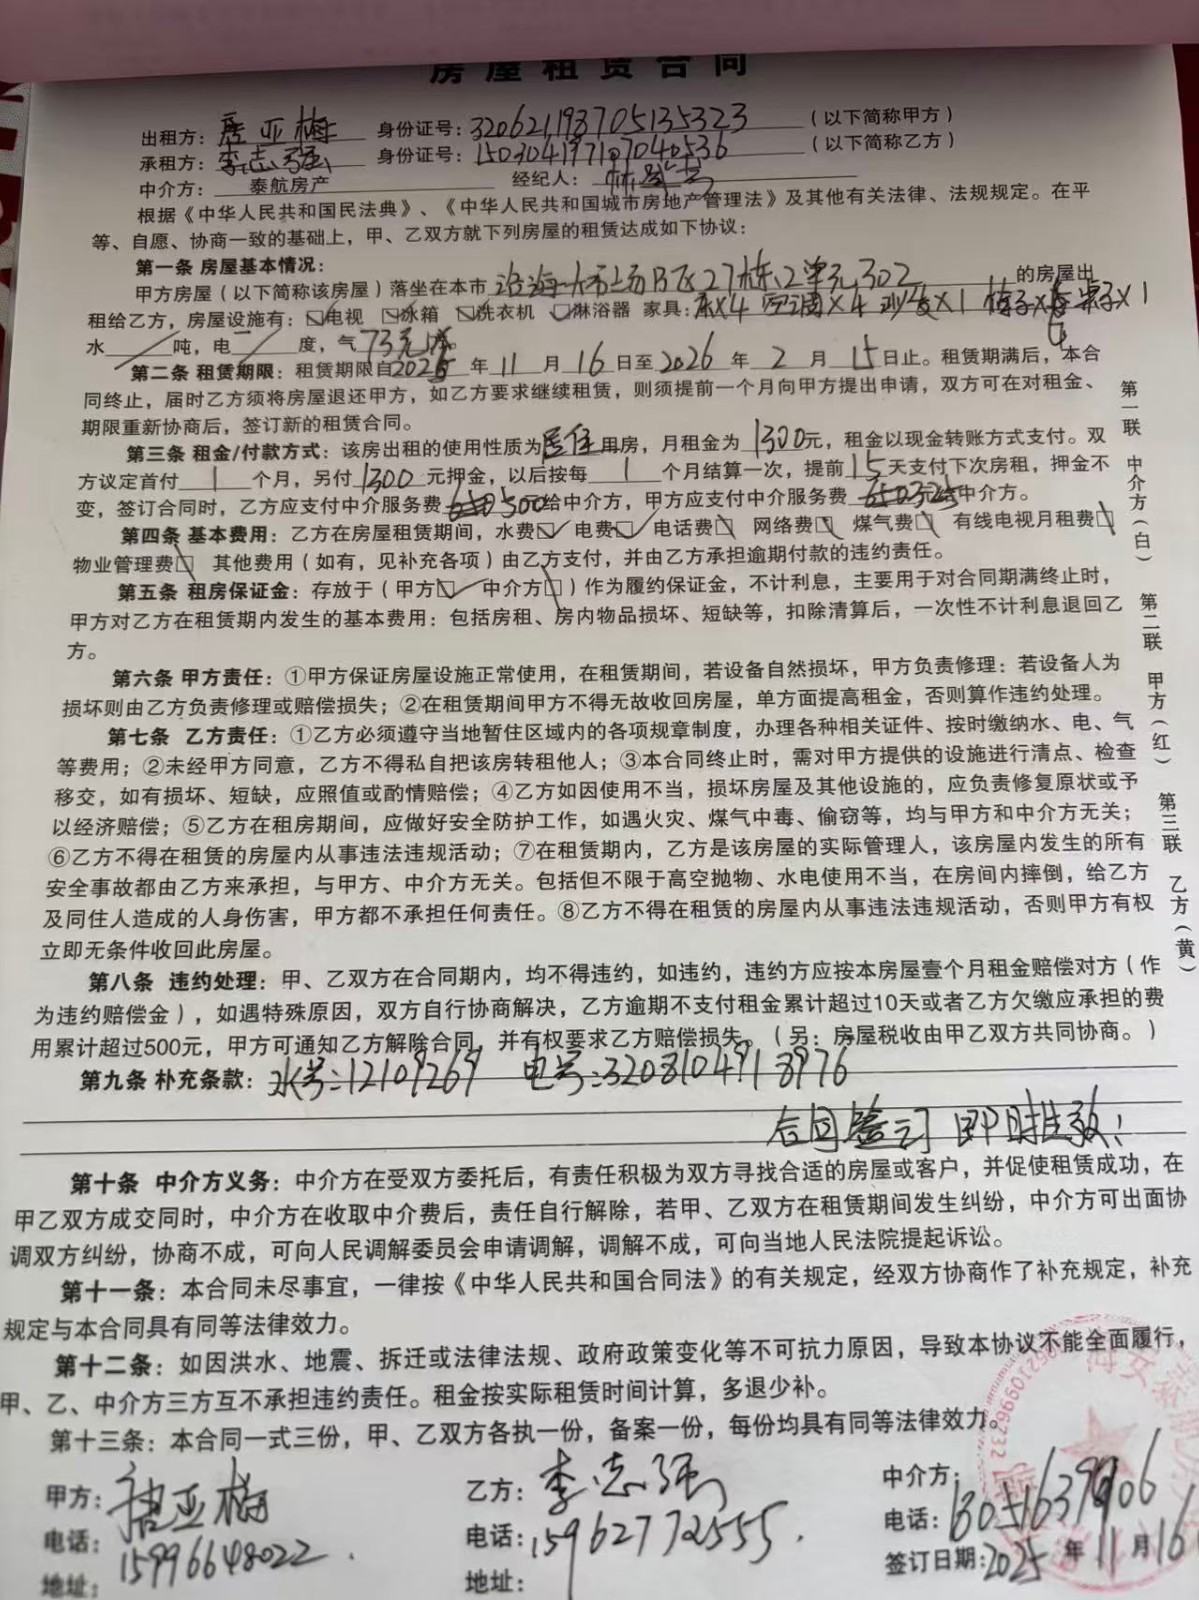 房屋租赁合同
出租方：唐亚梅 身份证号：320621193705135323 （以下简称甲方）
承租方：李志强 身份证号：150304197107040536 （以下简称乙方）
中介方：泰航房产 经纪人：林
根据《中华人民共和国民法典》、《中华人民共和国城市房地产管理法》及其他有关法律、法规规定。在平
等、自愿、协商一致的基础上，甲、乙双方就下列房屋的租赁达成如下协议：
第一条 房屋基本情况：
甲方房屋（以下简称该房屋）落坐在本市 沿海大市场B区27栋2单元302 的房屋出
租给乙方，房屋设施有：☑电视 ☑冰箱 ☑洗衣机 ☑淋浴器 家具：床×4 空调×4 沙发×1 椅子×6 桌子×1
水 吨，电 度，气 73元
第二条 租赁期限：租赁期限自2025年11月16日至2026年2月15日止。租赁期满后，本合
同终止，届时乙方须将房屋退还甲方，如乙方要求继续租赁，则须提前一个月向甲方提出申请，双方可在对租金、
期限重新协商后，签订新的租赁合同。
第三条 租金/付款方式：该房出租的使用性质为居住用房，月租金为 1300元，租金以现金转账方式支付。双
方议定首付 1 个月，另付 1300 元押金，以后按每 1 个月结算一次，提前15天支付下次房租，押金不
变，签订合同时，乙方应支付中介服务费 650 500给中介方，甲方应支付中介服务费 650 325给中介方。
第四条 基本费用：乙方在房屋租赁期间，水费☑ 电费☑ 电话费□ 网络费□ 煤气费□ 有线电视月租费□
物业管理费□ 其他费用（如有，见补充各项）由乙方支付，并由乙方承担逾期付款的违约责任。
第五条 租房保证金：存放于（甲方☑ 中介方□）作为履约保证金，不计利息，主要用于对合同期满终止时，
甲方对乙方在租赁期内发生的基本费用：包括房租、房内物品损坏、短缺等，扣除清算后，一次性不计利息退回乙
方。
第六条 甲方责任：①甲方保证房屋设施正常使用，在租赁期间，若设备自然损坏，甲方负责修理：若设备人为
损坏则由乙方负责修理或赔偿损失；②在租赁期间甲方不得无故收回房屋，单方面提高租金，否则算作违约处理。
第七条 乙方责任：①乙方必须遵守当地暂住区域内的各项规章制度，办理各种相关证件、按时缴纳水、电、气
等费用；②未经甲方同意，乙方不得私自把该房转租他人；③本合同终止时，需对甲方提供的设施进行清点、检查
移交，如有损坏、短缺，应照值或酌情赔偿；④乙方如因使用不当，损坏房屋及其他设施的，应负责修复原状或予
以经济赔偿；⑤乙方在租房期间，应做好安全防护工作，如遇火灾、煤气中毒、偷窃等，均与甲方和中介方无关；
⑥乙方不得在租赁的房屋内从事违法违规活动；⑦在租赁期内，乙方是该房屋的实际管理人，该房屋内发生的所有
安全事故都由乙方来承担，与甲方、中介方无关。包括但不限于高空抛物、水电使用不当，在房间内摔倒，给乙方
及同住人造成的人身伤害，甲方都不承担任何责任。⑧乙方不得在租赁的房屋内从事违法违规活动，否则甲方有权
立即无条件收回此房屋。
第八条 违约处理：甲、乙双方在合同期内，均不得违约，如违约，违约方应按本房屋壹个月租金赔偿对方（作
为违约赔偿金），如遇特殊原因，双方自行协商解决，乙方逾期不支付租金累计超过10天或者乙方欠缴应承担的费
用累计超过500元，甲方可通知乙方解除合同，并有权要求乙方赔偿损失。（另：房屋税收由甲乙双方共同协商。）
第九条 补充条款：水号：12109269 电号：3208104918976
合同签订即时生效！
第十条 中介方义务：中介方在受双方委托后，有责任积极为双方寻找合适的房屋或客户，并促使租赁成功，在
甲乙双方成交同时，中介方在收取中介费后，责任自行解除，若甲、乙双方在租赁期间发生纠纷，中介方可出面协
调双方纠纷，协商不成，可向人民调解委员会申请调解，调解不成，可向当地人民法院提起诉讼。
第十一条：本合同未尽事宜，一律按《中华人民共和国合同法》的有关规定，经双方协商作了补充规定，补充
规定与本合同具有同等法律效力。
第十二条：如因洪水、地震、拆迁或法律法规、政府政策变化等不可抗力原因，导致本协议不能全面履行，
甲、乙、中介方三方互不承担违约责任。租金按实际租赁时间计算，多退少补。
第十三条：本合同一式三份，甲、乙双方各执一份，备案一份，每份均具有同等法律效力。
甲方：唐亚梅 乙方：李志强 中介方：
电话：15996648022 电话：15962772555 电话：
地址： 地址： 签订日期：2025年11月16
第一联 中介方（白） 第二联 甲方（红） 第三联 乙方（黄）